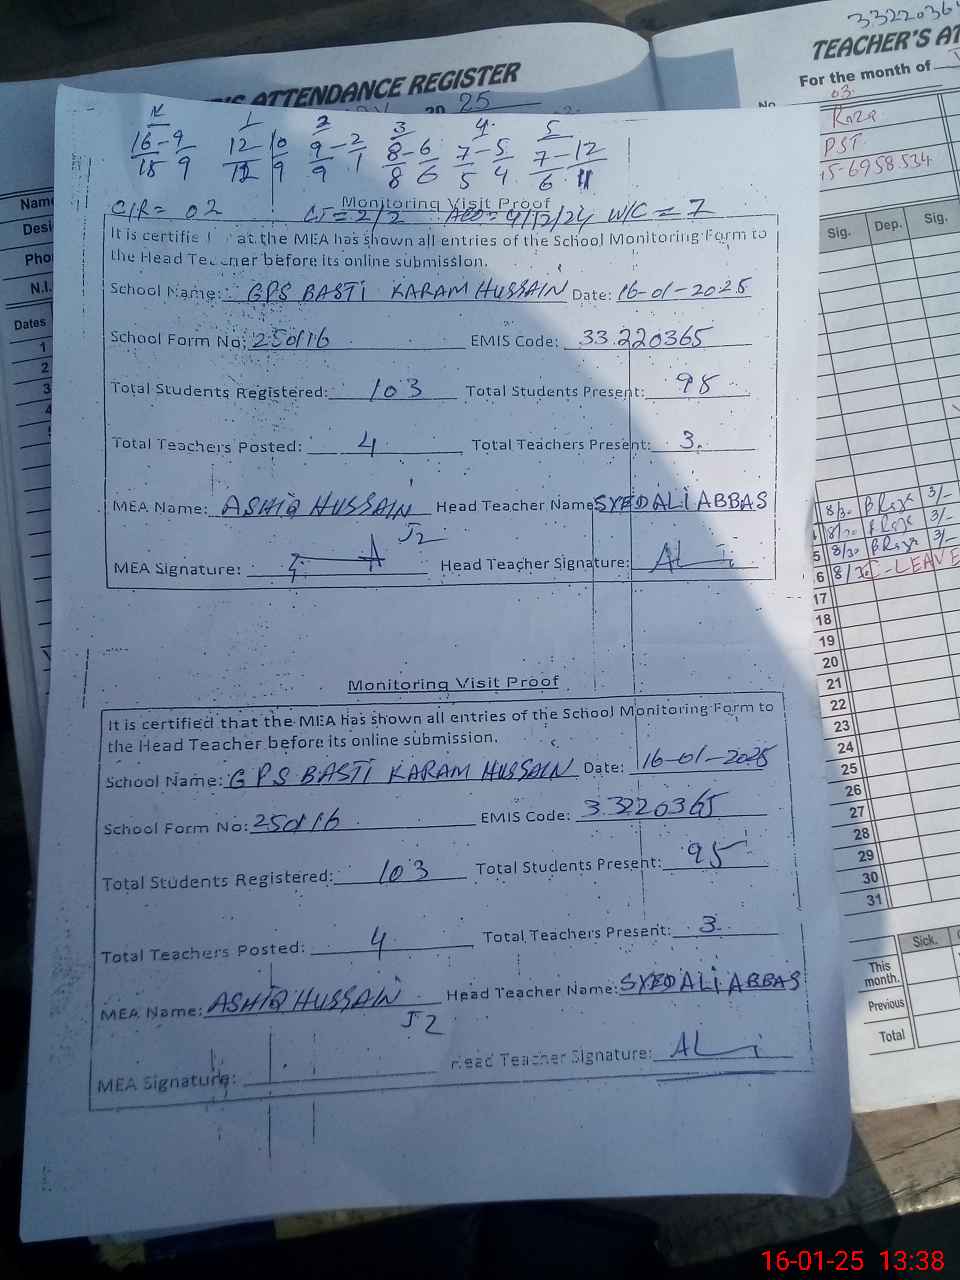 33220365
TEACHER'S AT
For the month of
'S ATTENDANCE REGISTER
20 25
No. 03
Raza
PST
15-6958534
Name
Desi
Pho
N.I.
Dates
1
2
3
4
Sig. Dep. Sig.
K 1 2 3 4 5
16-9 12 10 9-2 8-6 7-5 7-12
15 9 12 9 9 1 8 6 5 4 6 11
C/R= 02 CJ=2/2 AEO=4/12/24 W/C=7
Monitoring Visit Proof
It is certifie at the MEA has shown all entries of the School Monitoring Form to
the Head Teacher before its online submission.
School Name: GPS BASTI KARAM HUSSAIN Date: 16-01-2025
School Form No: 250116 EMIS Code: 33220365
Total Students Registered: 103 Total Students Present: 95
Total Teachers Posted: 4 Total Teachers Present: 3.
MEA Name: ASHIQ HUSSAIN Head Teacher Name SYED ALI ABBAS
J2
MEA Signature: Head Teacher Signature: ALi
Monitoring Visit Proof
It is certified that the MEA has shown all entries of the School Monitoring Form to
the Head Teacher before its online submission.
School Name: GPS BASTI KARAM HUSSAIN Date: 16-01-2025
School Form No: 250116 EMIS Code: 33220365
Total Students Registered: 103 Total Students Present: 95
Total Teachers Posted: 4 Total Teachers Present: 3
MEA Name: ASHIQ HUSSAIN Head Teacher Name: SYED ALI ABBAS
J2
MEA Signature: Head Teacher Signature: ALi
8/30 3/-
8/30 3/-
5 8/30 3/-
6 C-LEAVE
17
18
19
20
21
22
23
24
25
26
27
28
29
30
31
Sick.
This month.
Previous
Total
16-01-25 13:38